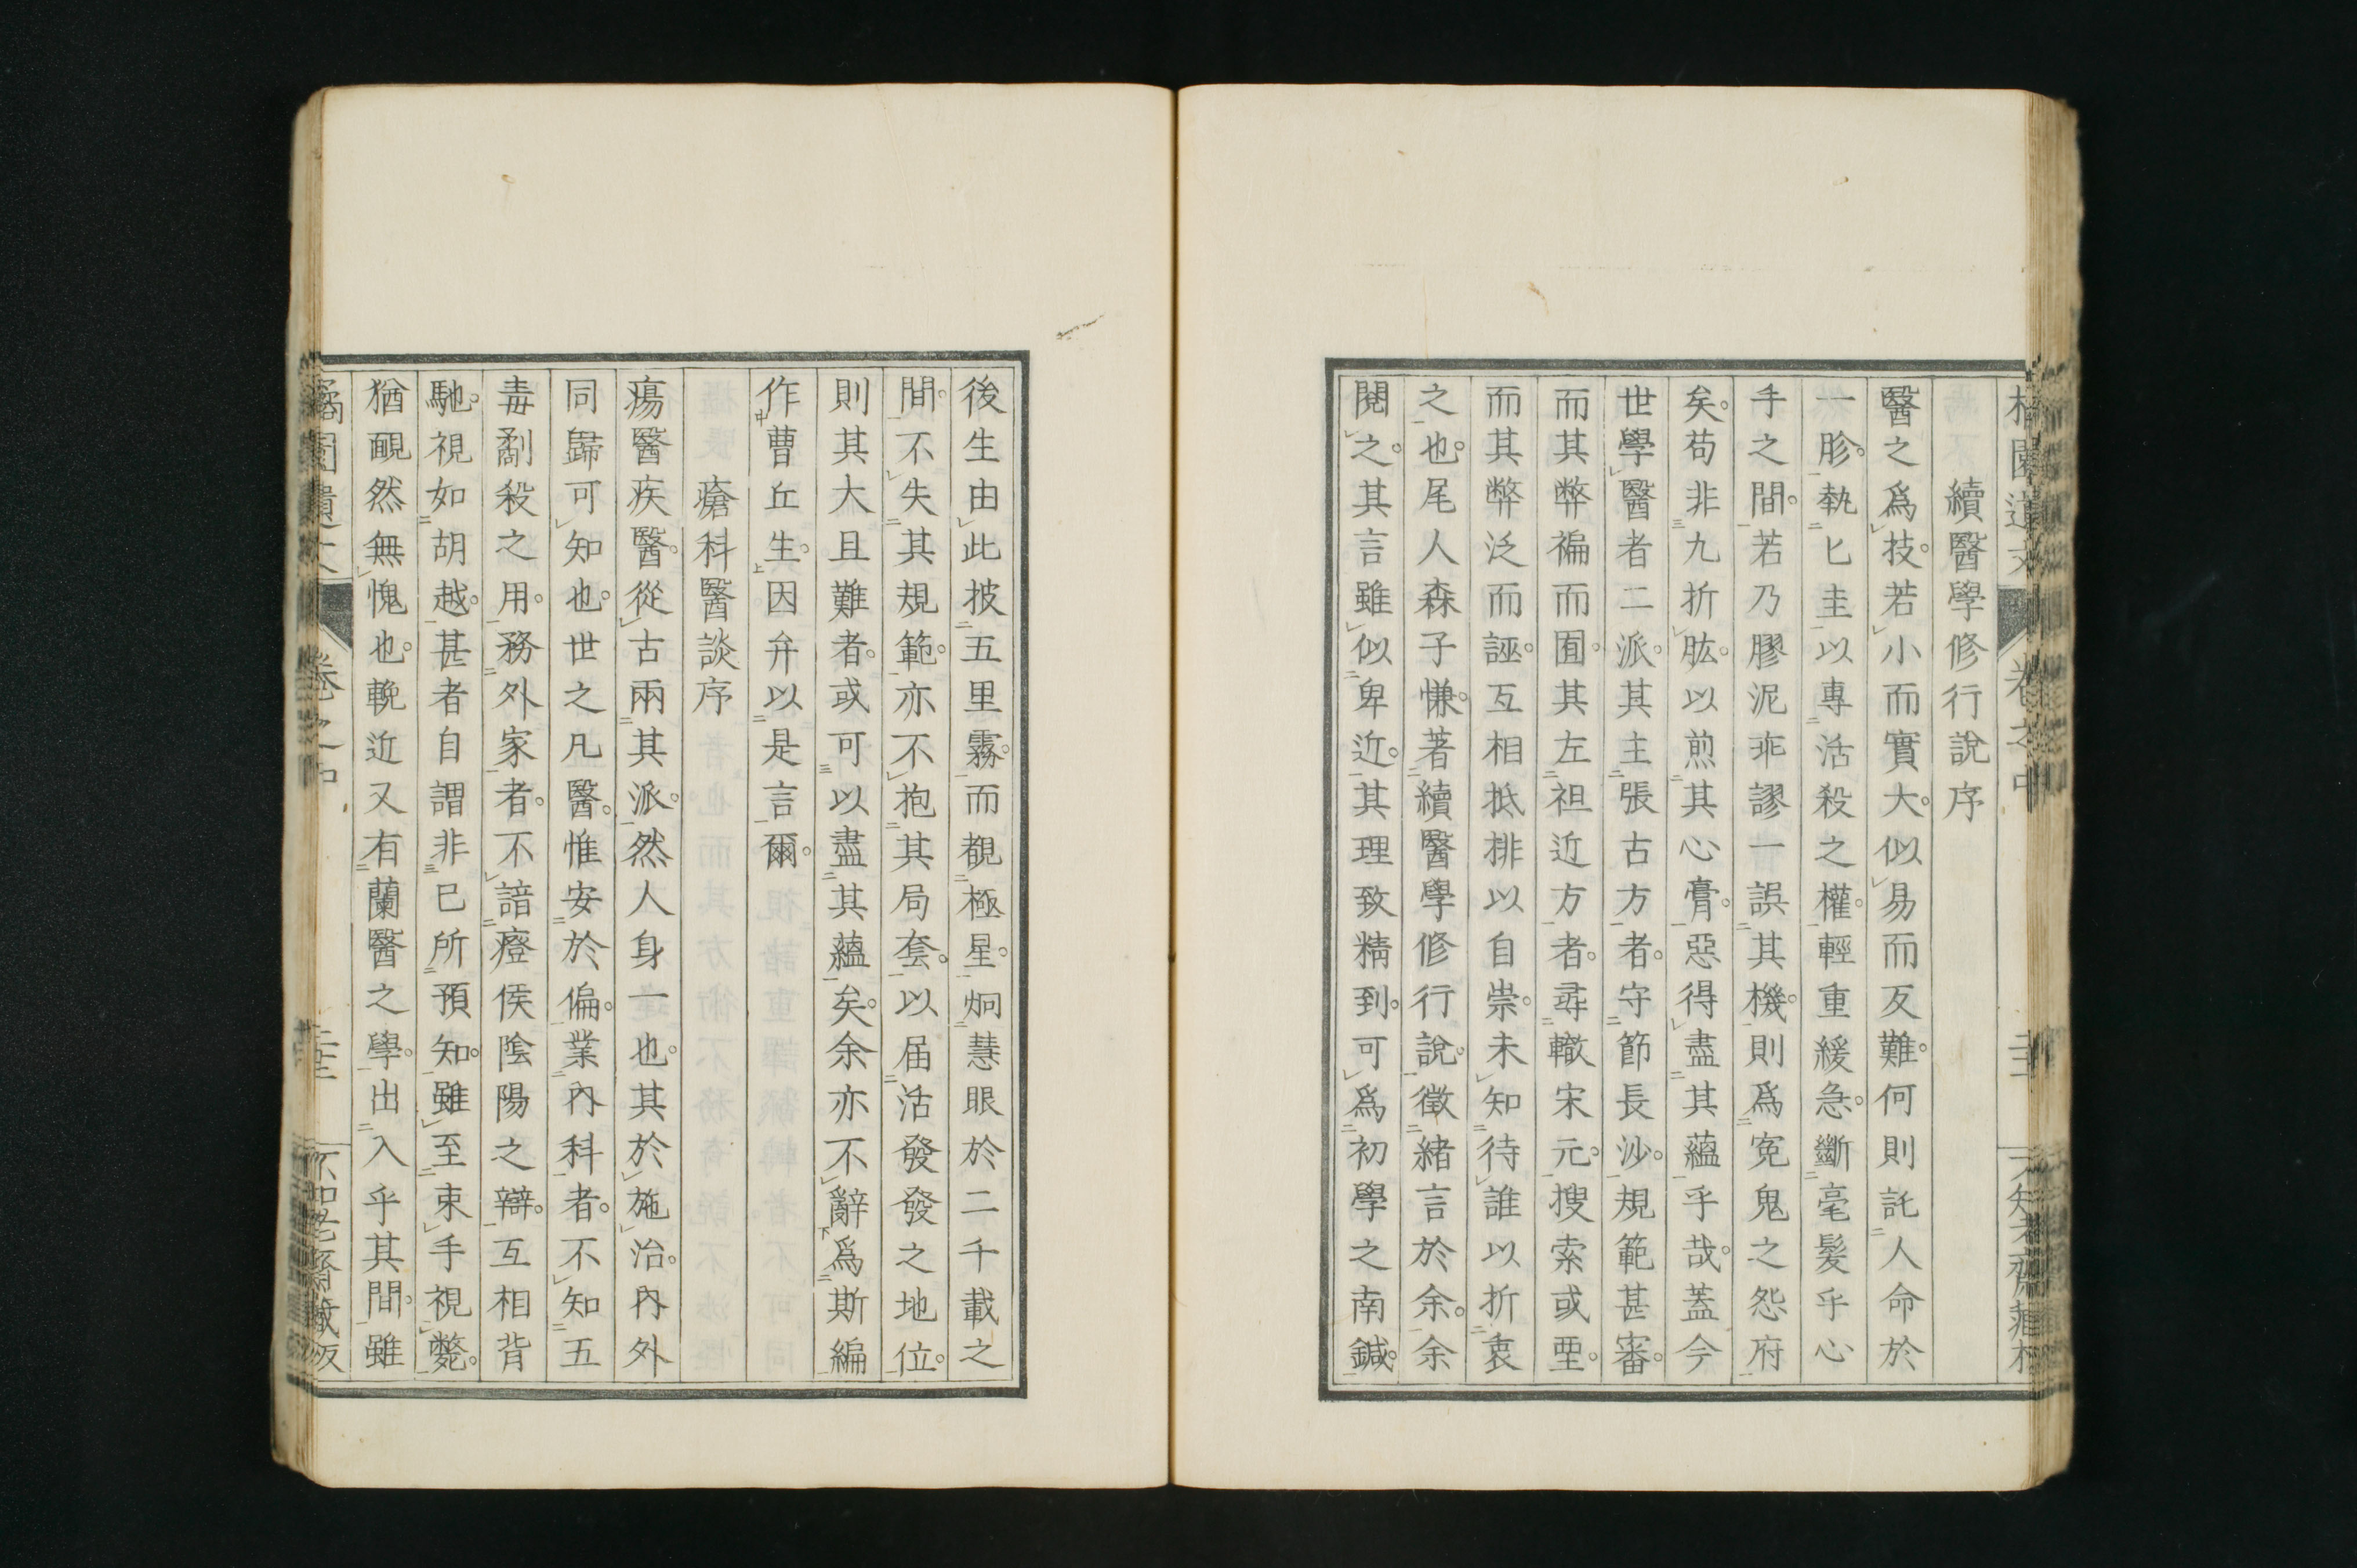 續醫學修行說序
醫之爲技。若小而實大。似易而反難。何則託人命於
一胗。執匕圭以專活殺之權。輕重緩急。斷毫髮乎心
手之間。若乃膠泥乖謬一誤其機。則爲寃鬼之怨府
矣。苟非九折肱。以煎其心膏。惡得盡其蘊乎哉。蓋今
世學醫者二派。其主張古方者。守節長沙。規範甚審。
而其弊褊而固。其左袒近方者。尋轍宋元。搜索或垔。
而其弊泛而誣。互相抵排以自崇。未知待誰以折衷
之也。尾人森子慊。著續醫學修行說。徵緒言於余。余
閱之。其言雖似卑近。其理致精到。可爲初學之南鍼。
後生由此披五里霧。而覩極星。炯慧眼於二千載之
間。不失其規範。亦不抱其局套。以届活發發之地位。
則其大且難者。或可以盡其蘊矣。余亦不辭爲斯編
作曹丘生。因弁以是言爾。
瘡科醫談序
瘍醫疾醫。從古兩其派。然人身一也。其於施治。內外
同歸可知也。世之凡醫。惟安於偏。業內科者。不知五
毒劀殺之用。務外家者。不諳癥侯陰陽之辯。互相背
馳。視如胡越。甚者自謂非已所預知。雖至束手視斃。
猶靦然無愧也。輓近又有蘭醫之學。出入乎其間。雖